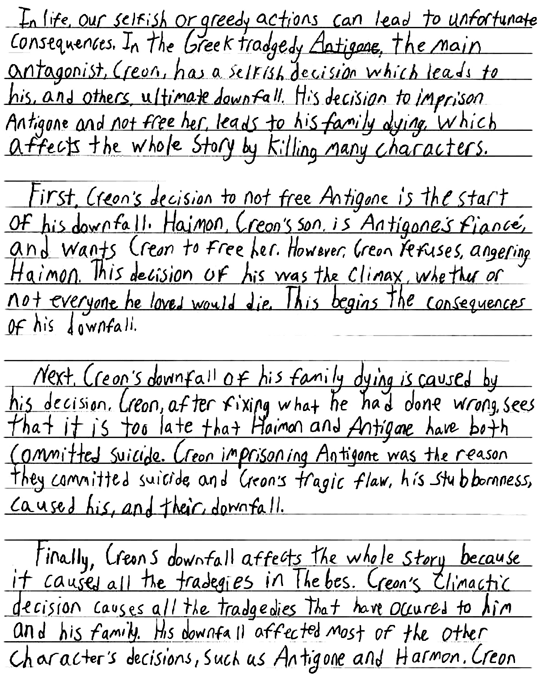 In life, our selfish or greedy actions can lead to unfortunate
consequences. In the Greek tradgedy Antigone, the main
antagonist, Creon, has a selfish decision which leads to
his, and others, ultimate downfall. His decision to imprison
Antigone and not free her, leads to his family dying. Which
affects the whole story by killing many characters.
First, Creon's decision to not free Antigone is the start
of his downfall. Haimon, Creon's son, is Antigone's fiancé,
and wants Creon to free her. However, Creon refuses, angering
Haimon. This decision of his was the climax, whether or
not everyone he loved would die. This begins the consequences
of his downfall.
Next, Creon's downfall of his family dying is caused by
his decision. Creon, after fixing what he had done wrong, sees
that it is too late that Haimon and Antigone have both
committed suicide. Creon imprisoning Antigone was the reason
they committed suicide, and Creon's tragic flaw, his stubbornness,
caused his, and their, downfall.
Finally, Creon's downfall affects the whole story because
it caused all the tradegies in Thebes. Creon's climactic
decision causes all the tradgedies that have occured to him
and his family. His downfall affected most of the other
character's decisions, such as Antigone and Harmon. Creon